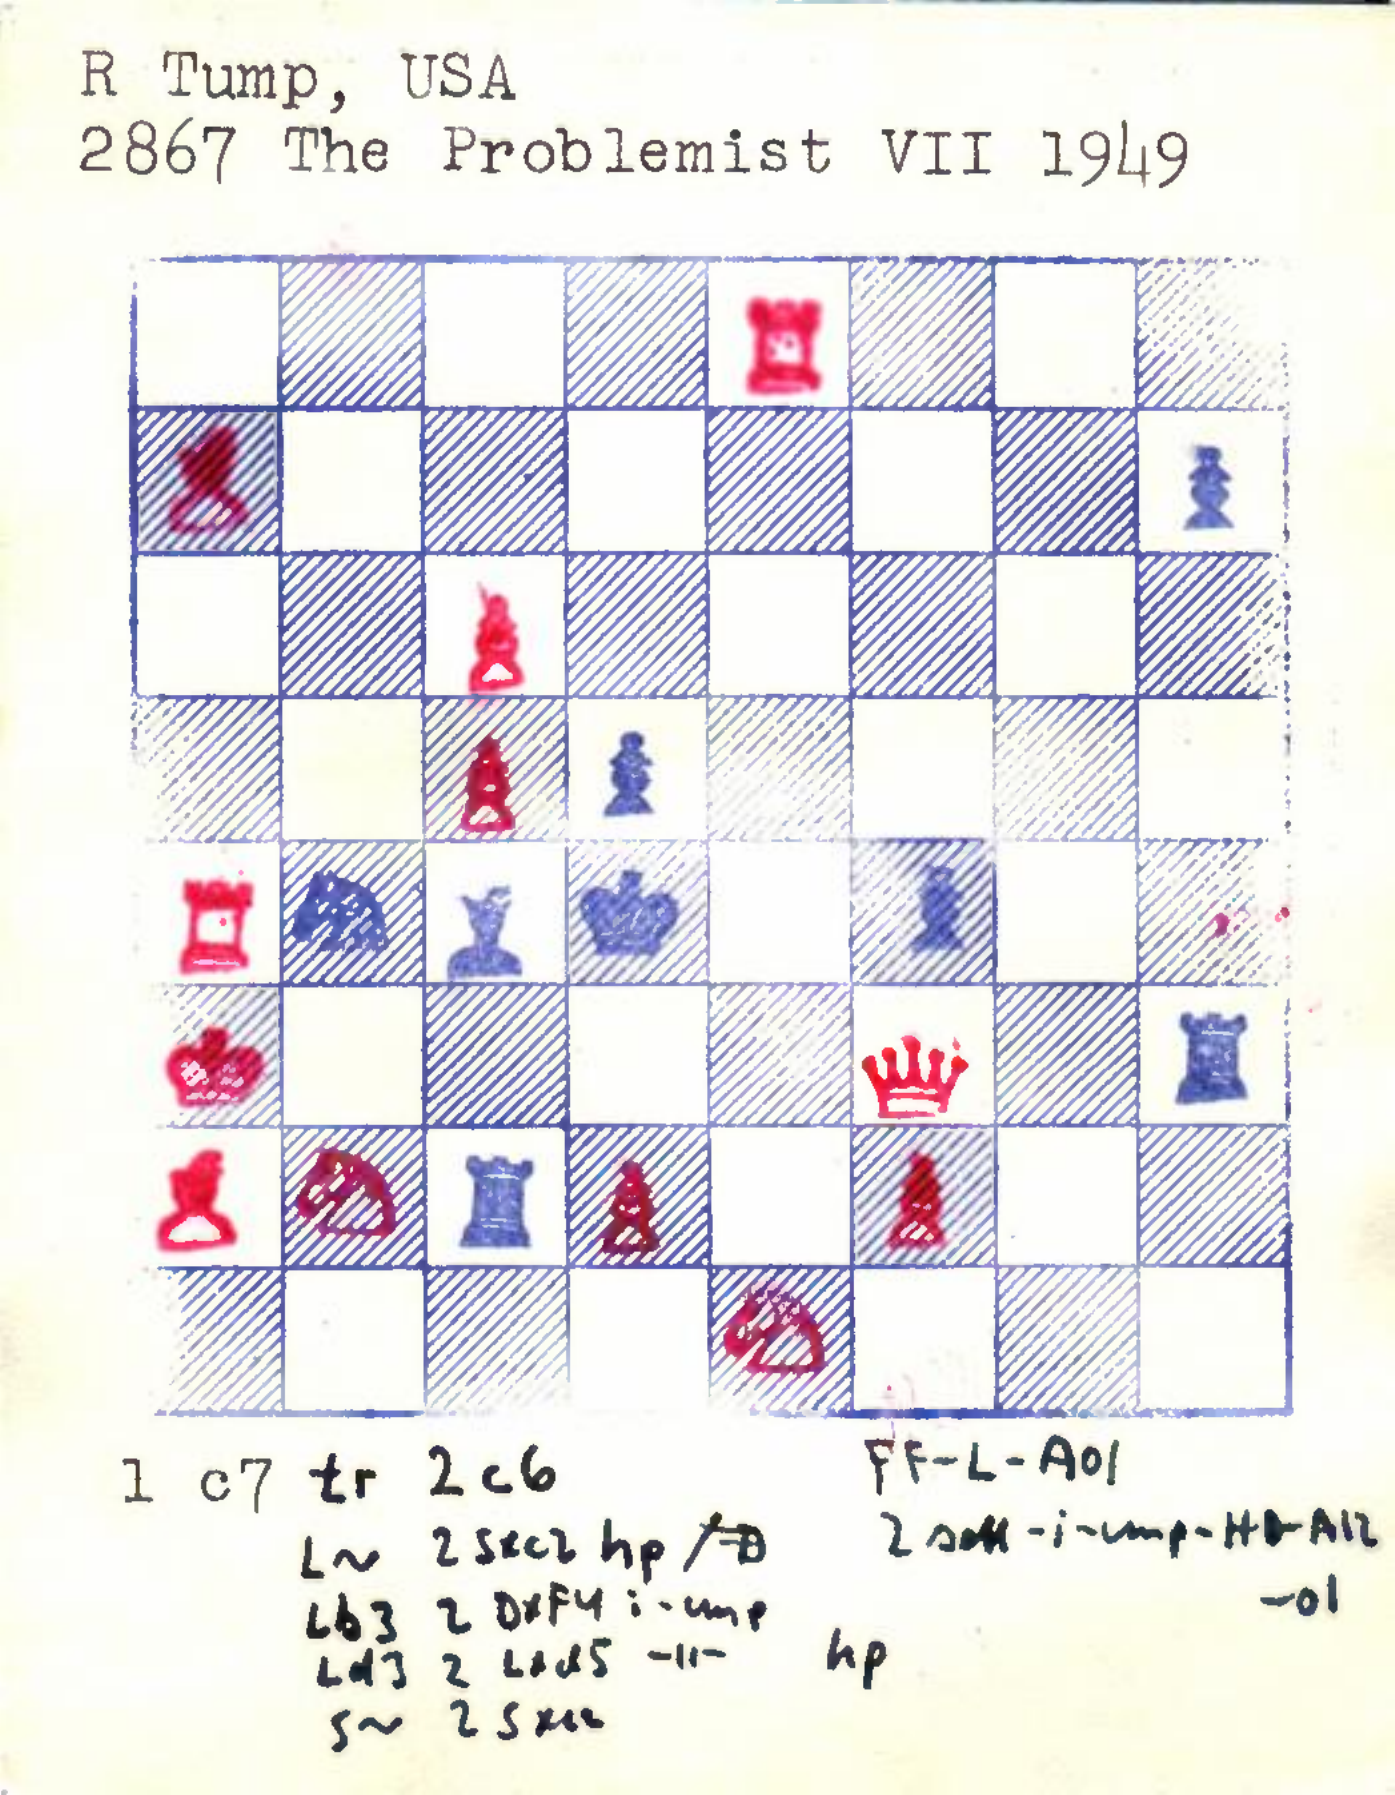 R Tump, USA
2867 The Problemist VII 1949
1 c7 tr 2c6
L~ 2Sxc2 hp
Lb3 2 DxF4 i-ump
Ld3 2 Lxd5 -11- hp
S~ 2 Sxc2
FF-L-A01
2 -i-ump-HD-A12
-01